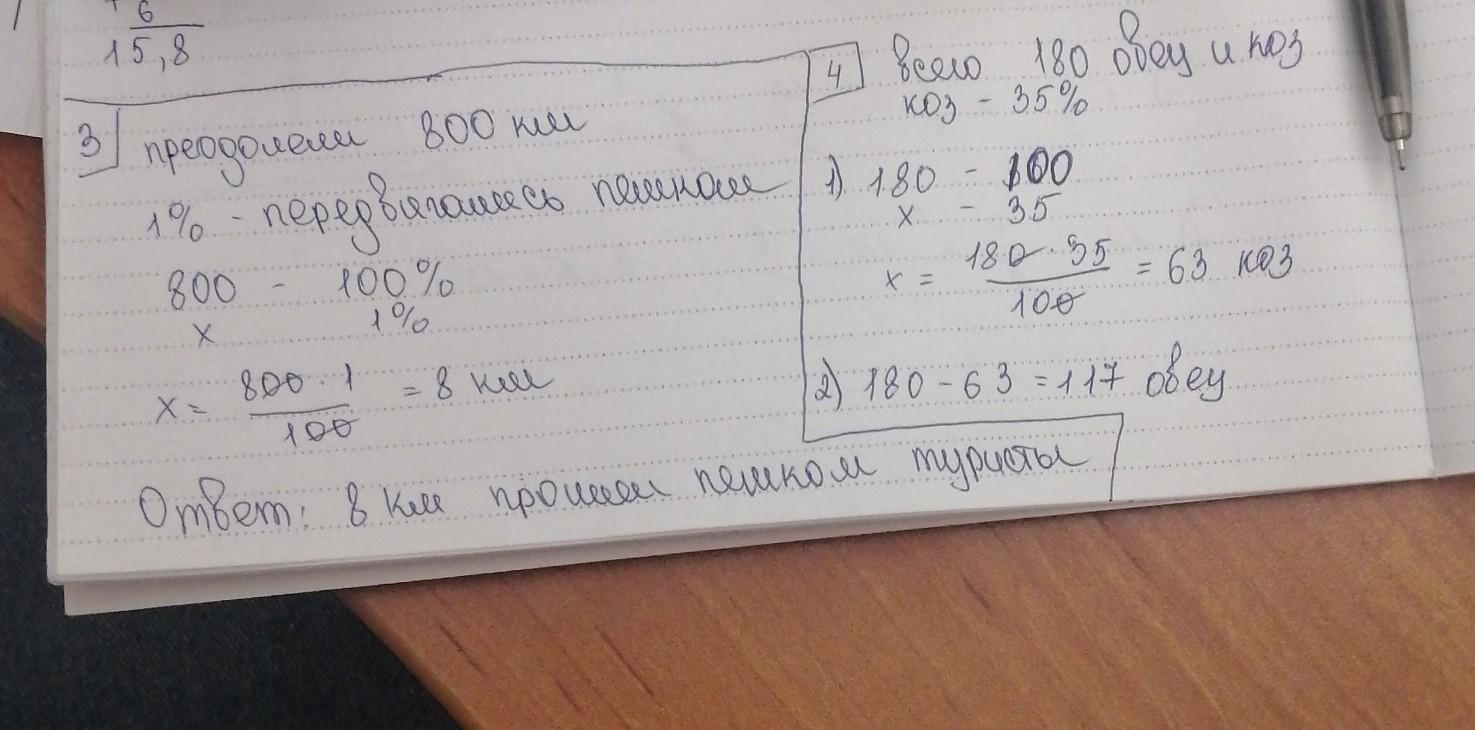 6
15,8
3 преодолели 800 км
1% - передвигались пешком
800 - 100%
x 1%
x = 800 · 1 / 100 = 8 км
Ответ: 8 км прошли пешком туристы
4 Всего 180 овец и коз
коз - 35%
1) 180 - 100
x - 35
x = 180 · 35 / 100 = 63 коз
2) 180 - 63 = 117 овец